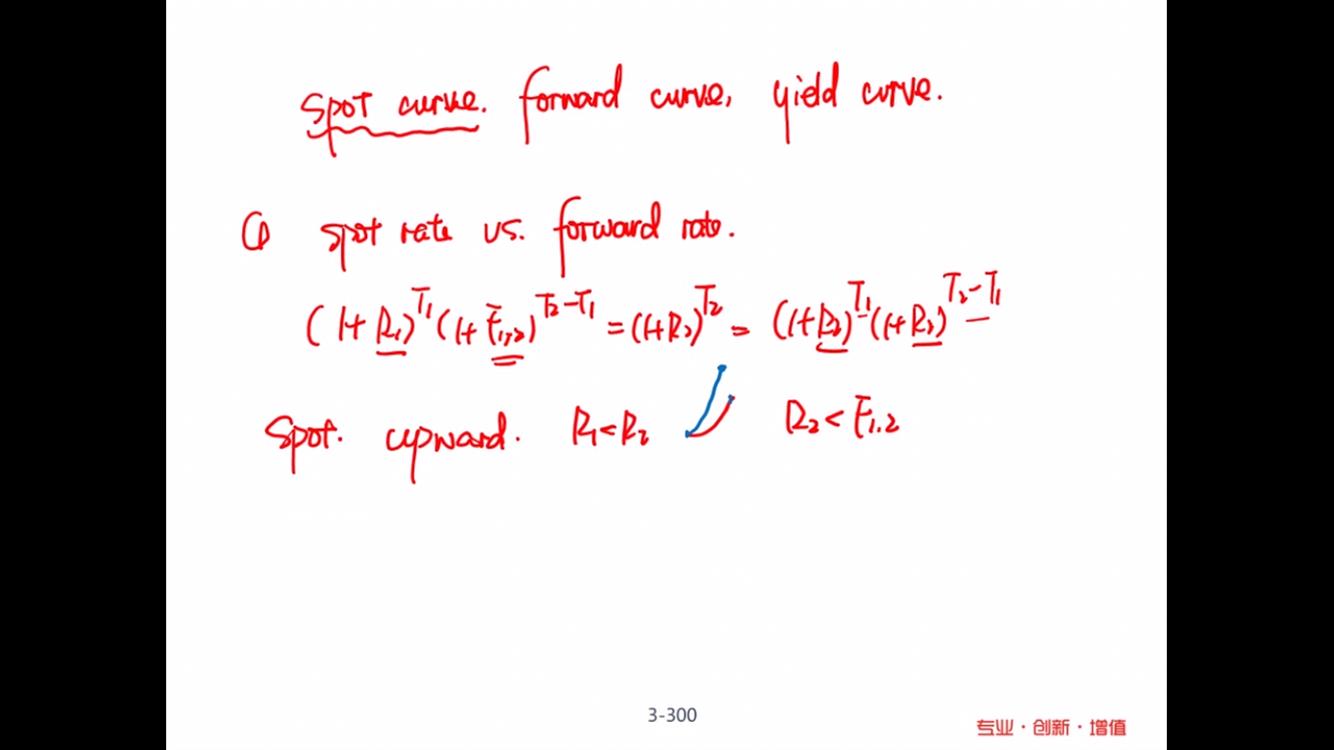 spot curve. forward curve, yield curve.
① spot rate vs. forward rate.
(1+R₁)^T₁ (1+F₁,₂)^T₂-T₁ = (1+R₂)^T₂ = (1+R₂)^T₁ (1+R₂)^T₂-T₁
Spot. upward. R₁<R₂ R₂<F₁.₂
3-300
专业·创新·增值